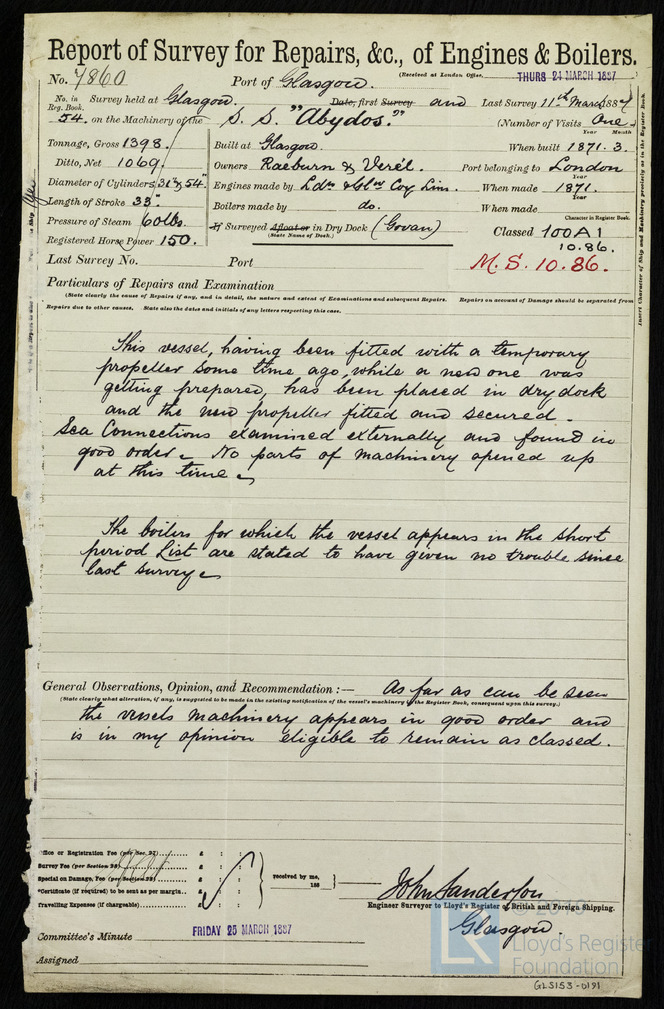 Report of Survey for Repairs, &c., of Engines & Boilers.
(Received at London Office, THURS 24 MARCH 1887)
No. 7860 Port of Glasgow.
No. in Reg. Book. Survey held at Glasgow. Date, first Survey and Last Survey 11th March 1887
54. on the Machinery of the S. S. "Abydos." (Number of Visits One)
Tonnage, Gross 1398. Built at Glasgow. When built 1871. 3.
Year Month
Ditto, Net 1069. Owners Raeburn & Verél. Port belonging to London
Diameter of Cylinders 31" & 54" Engines made by Ldn & Glw Coy Lim. When made 1871.
Year
Length of Stroke 33" Boilers made by do. When made
Year
Pressure of Steam 60 lbs. If Surveyed Afloat or in Dry Dock (Govan)
(State Name of Dock.)
Character in Register Book.
Classed 100A1
10.86.
Registered Horse Power 150.
Last Survey No. Port M.S. 10.86.
Particulars of Repairs and Examination
(State clearly the cause of Repairs if any, and in detail, the nature and extent of Examinations and subsequent Repairs. Repairs on account of Damage should be separated from
Repairs due to other causes. State also the dates and initials of any letters respecting this case.
Insert Character of Ship and Machinery precisely as in the Register Book.
This vessel, having been fitted with a temporary
propeller some time ago, while a new one was
getting prepared, has been placed in dry dock
and the new propeller fitted and secured.
Sea Connections examined externally and found in
good order. No parts of machinery opened up
at this time.
The boilers for which the vessel appears in the short
period List are stated to have given no trouble since
last survey.
General Observations, Opinion, and Recommendation :— As far as can be seen
(State clearly what alteration, if any, is suggested to be made in the existing notification of the vessel's machinery in the Register Book, consequent upon this survey.)
the vessels machinery appears in good order and
is in my opinion eligible to remain as classed.
Office or Registration Fee (per Sec. 27)...... £ : :
Survey Fee (per Section 28)...... £ : :
Special on Damage, Fee (per Section 28)...... £ : :
*Certificate (if required) to be sent as per margin.. £ : :
Travelling Expenses (if chargeable)...... £ : :
received by me,
188
John Sanderson
Engineer Surveyor to Lloyd's Register of British and Foreign Shipping.
Glasgow.
Committee's Minute FRIDAY 25 MARCH 1887
Assigned
© 2019
LR
Lloyd's Register
Foundation
GLS153-0191